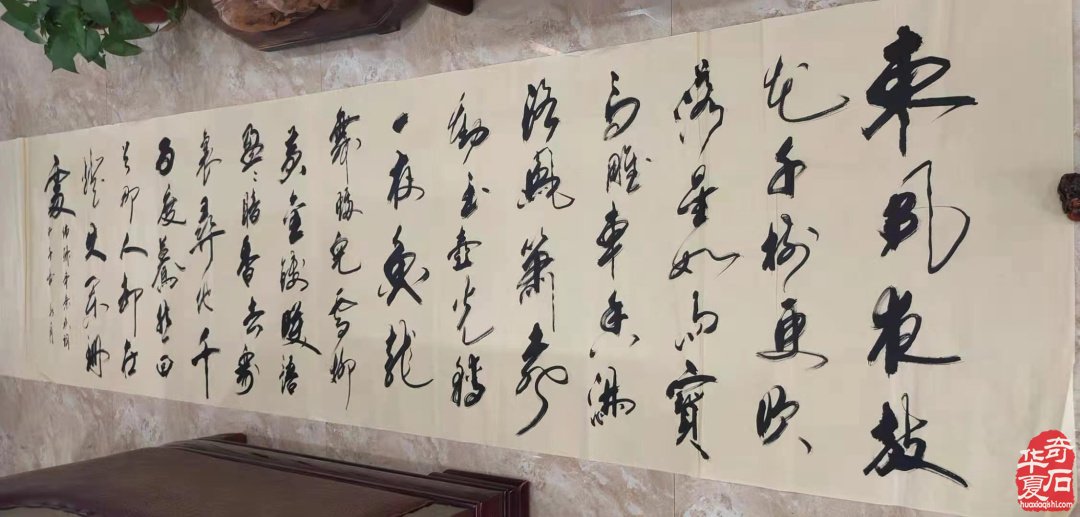 東风夜放
花千樹更吹
落星如雨寶
馬雕車香满
路鳳簫聲
動玉壺光轉
一夜魚龍
舞蛾兒雪柳
黄金縷笑語
盈〻暗香去衆
裏尋他千
百度驀然回
首那人却在
燈火阑珊
處
奇石
华夏
huaxiaqishi.com